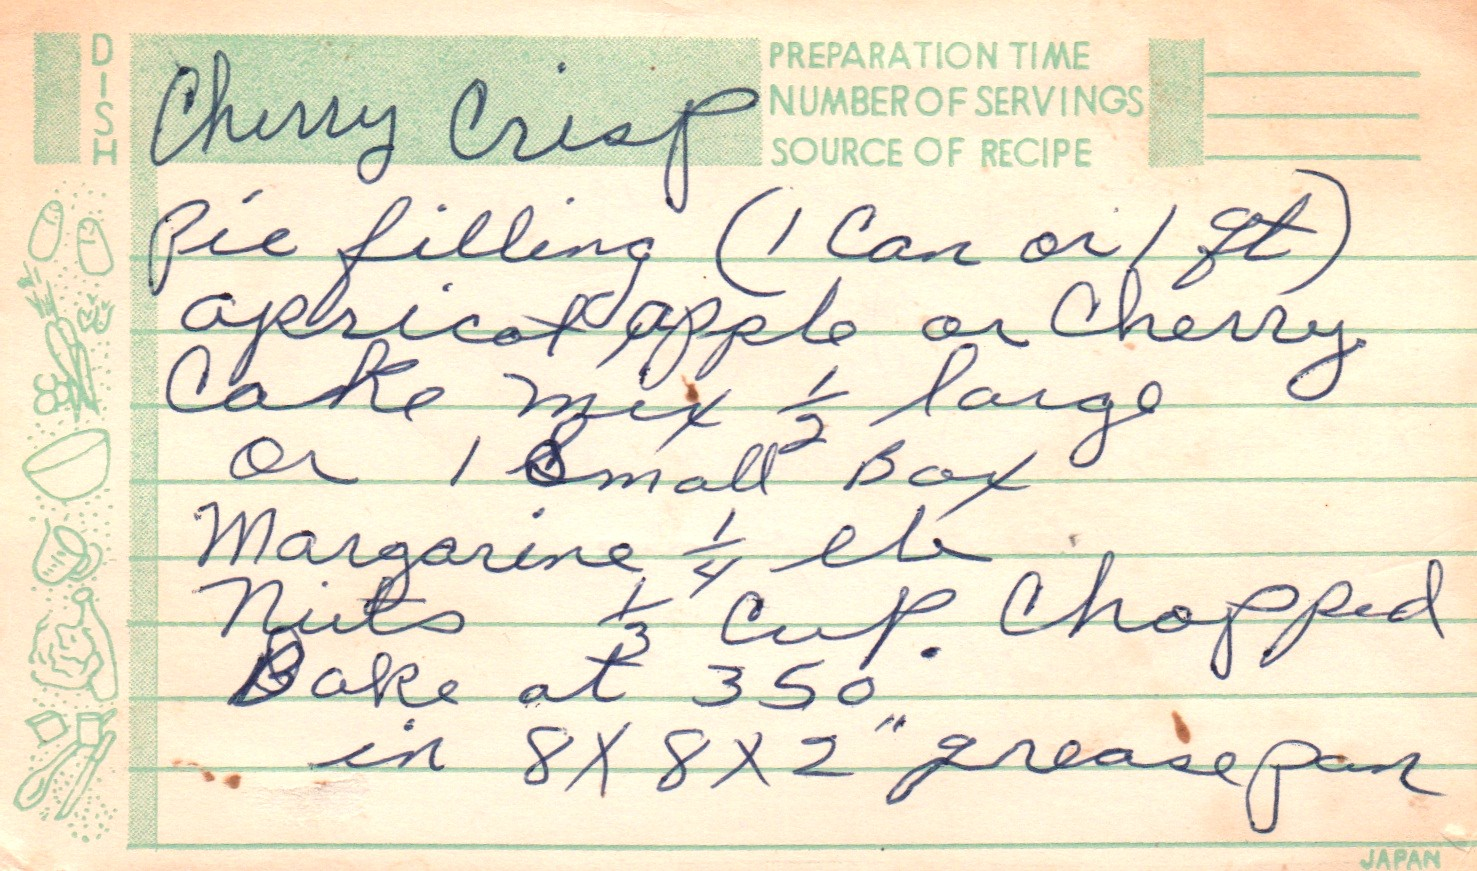 DISH
Cherry Crisp
PREPARATION TIME
NUMBER OF SERVINGS
SOURCE OF RECIPE
Pie filling (1 Can or 1 qt)
apricot, apple or Cherry
Cake mix 1/2 large
or 1 Small Box
Margarine 1/4 lb
Nuts 1/3 Cup. Chopped
Bake at 350
in 8X8X2" grease pan
JAPAN